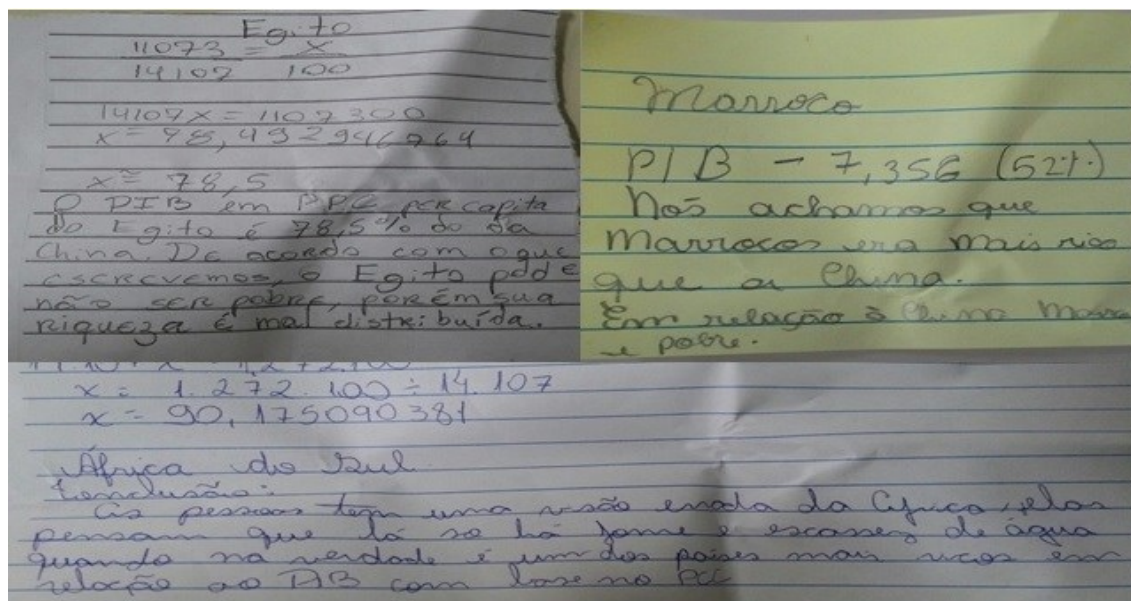 Egito
11073 = x
14107 100
14107x = 1107300
x = 78,492946764
x ≅ 78,5
O PIB em PPC per capita
do Egito é 78,5% do da
China. De acordo com o que
escrevemos, o Egito pode
não ser pobre, porém sua
riqueza é mal distribuída.
Marroco
PIB - 7,356 (52%)
Nós achamos que
Marrocos era mais rico
que a China.
Em relação à China
e pobre.
x = 1.272.100 ÷ 14.107
x = 90,175090381
África do Sul
Conclusão:
As pessoas tem uma visão errada da África, elas
pensam que lá so há fome e escassez de água
quando na verdade é um dos países mais ricos em
relação ao PIB com base no PCC